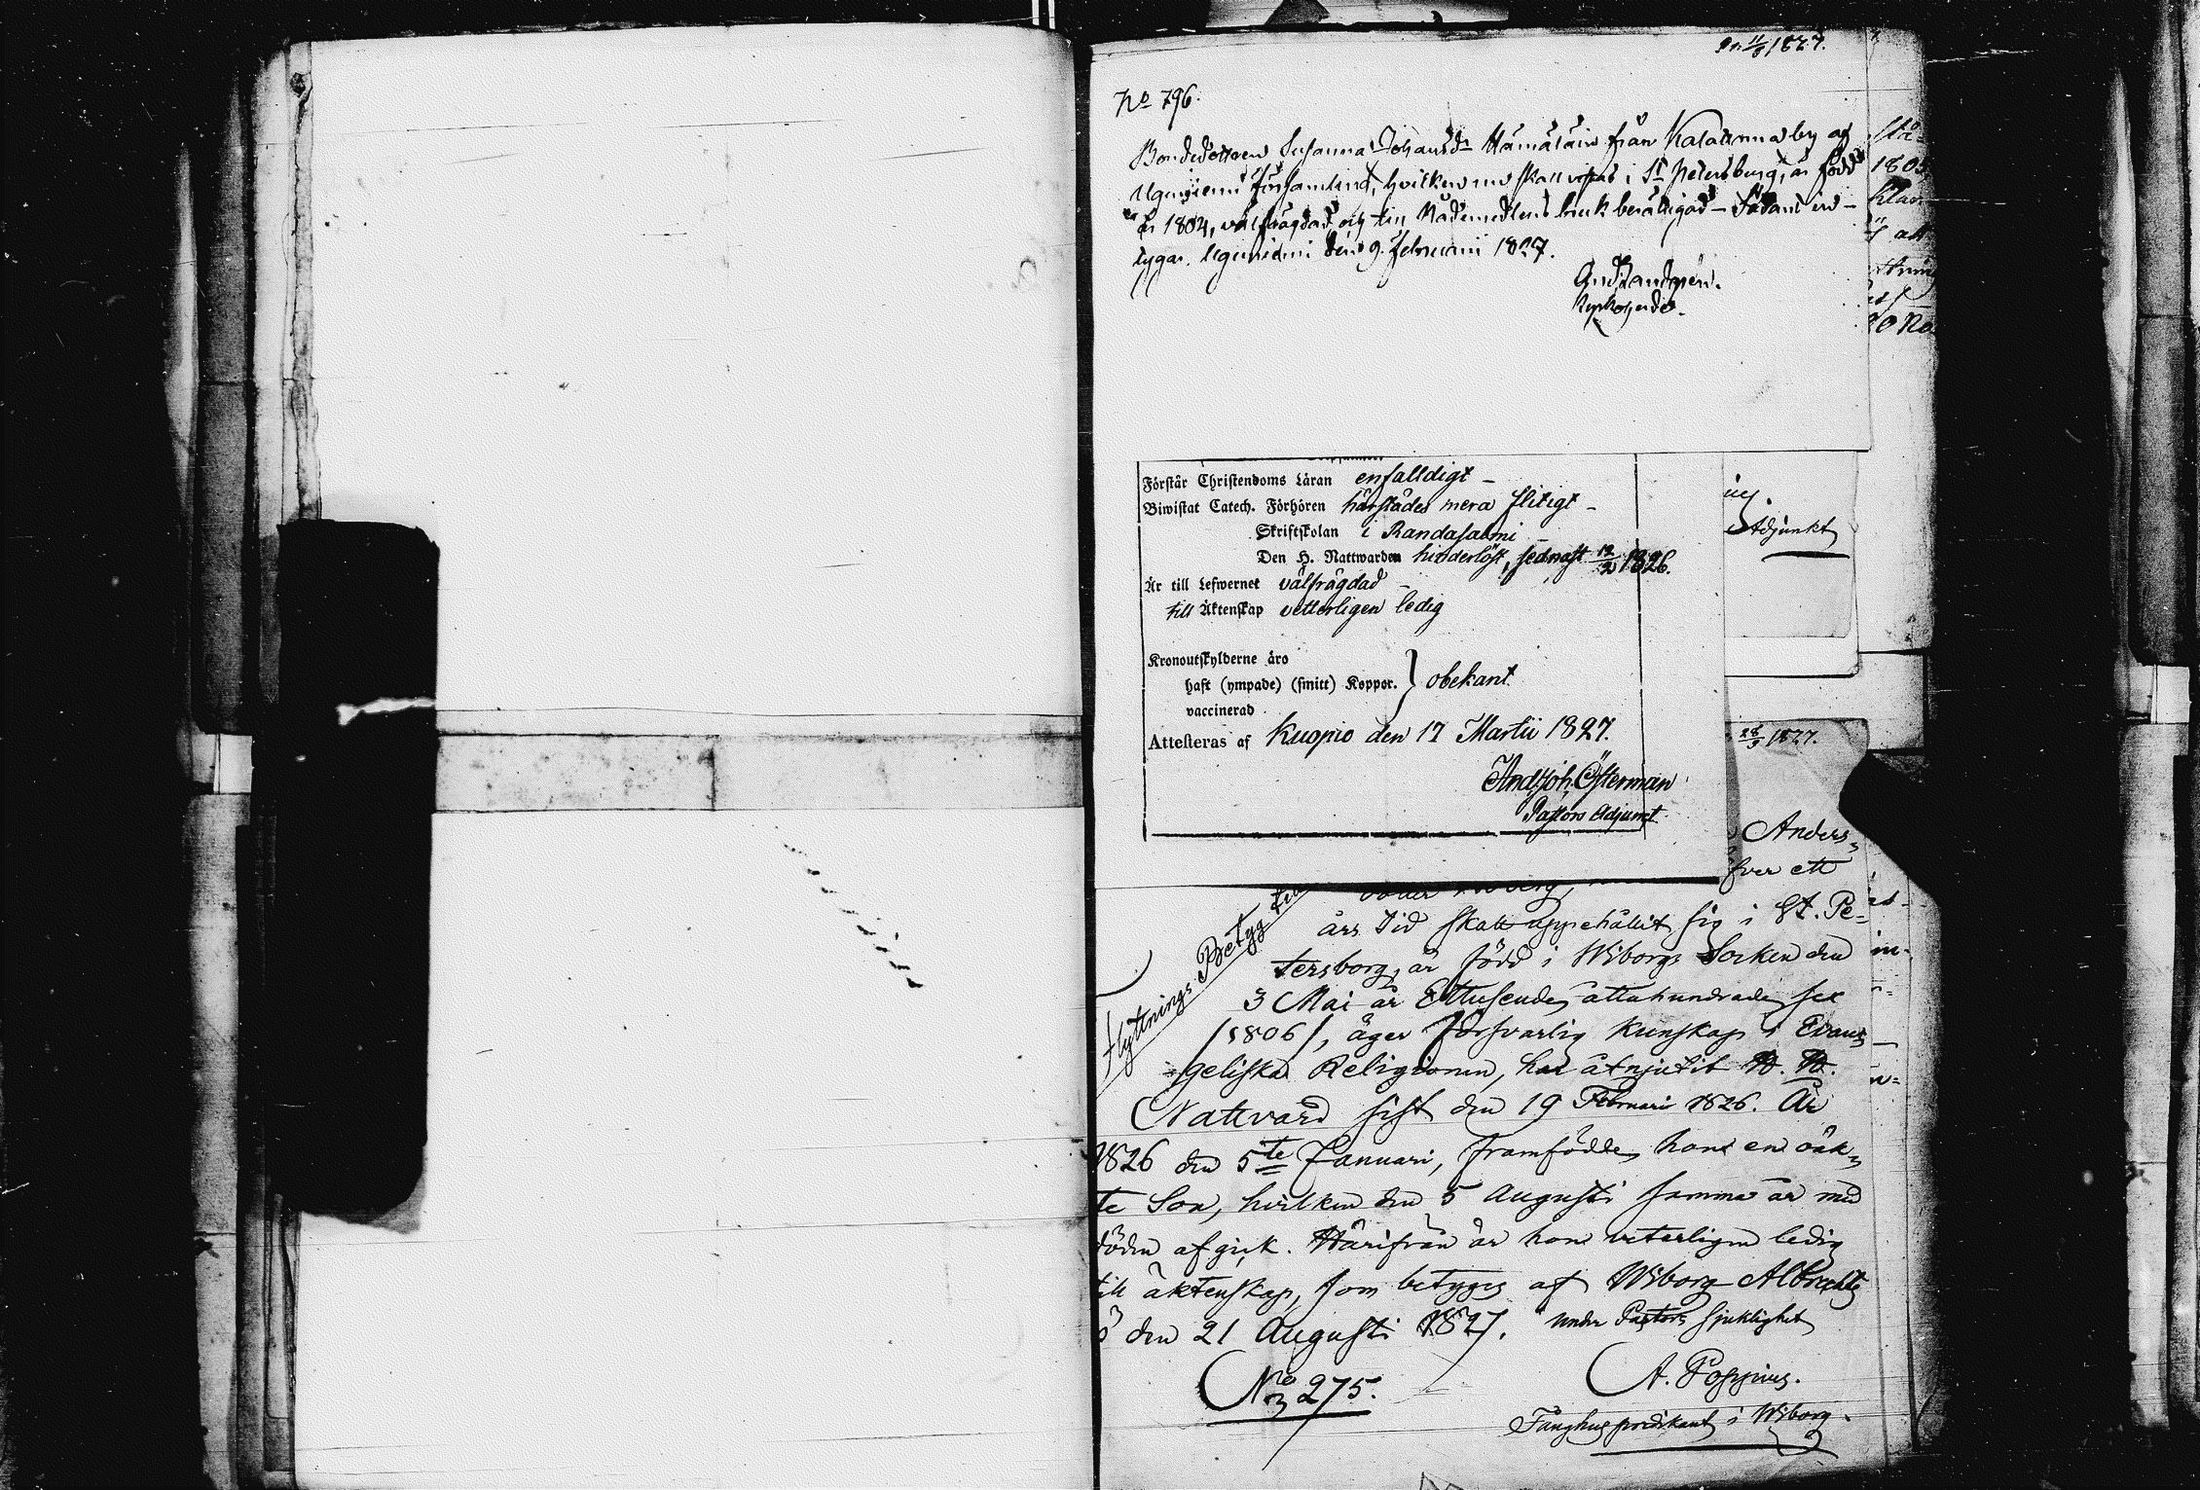 1827.
No 796.
Bondedottren Susanna Johansdr Hämäläin från Kalalamma by af
Uguniemi församling, hvilken nu skall vistas i St Petersburg, är född
år 1804, välfrägdad och till Nådemedlens bruk berättigad – Sådant in-
tygar. Uguniemi den 9. februarii 1827.
Kyrkoherde.
Förstår Christendoms Läran enfalldigt –
Biwistat Catech. Förhören härstädes mera flitigt –
Skriftskolan i Randasalmi –
Den H. Nattwarden hinderlöst, sednast 1826.
Är till Lefwernet välfrägdad –
till Äktenskap vetterligen ledig
Kronoutskylderne äro
haft (ympade) (smitt) Koppor. } obekant.
vaccinerad
Attesteras af Kuopio den 17 Martii 1827.
And. Joh. Österman
Pastors Adjunct.
Adjunkt
1827.
Anders
fver ett
Flyttnings Betyg
års Tid skall uppehållit sig i St. Pe=
tersborg, är född i Wiborgs Socken den
3 Mai år Ettusende åttahundrade sex
/1806/, äger försvarlig kunskap i Evan=
geliska Religionen, har åtnjutit H. H.
Nattvard sist den 19 Februari 1826. År
1826 den 5te Januari, framfödde hon en oäk=
te Son, hvilken den 5 Augusti samma år med
döden afgick. Härifrån är hon veterligen ledig
till äktenskap, som betyges af Wiborg
den 21 Augusti 1827. under Pastors sjuklighet
No 275.
A. Poppius.
Fånghuspredikant i Wiborg.